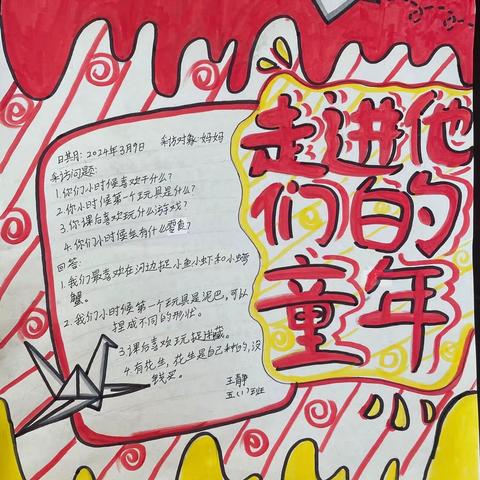 走进他
们的
童年
日期：2024年3月9日 采访对象：妈妈
采访问题：
1.你们小时候喜欢干什么？
2.你小时候第一个玩具是什么？
3.你课后喜欢玩什么游戏？
4.你们小时候会有什么零食？
回答：
1.我们最喜欢在河边捉小鱼小虾和小螃
蟹。
2.我们小时候第一个玩具是泥巴，可以
捏成不同的形状。
3.课后喜欢玩捉迷藏。
4.有花生，花生是自己种的，没
钱买。
王静
五（1）班